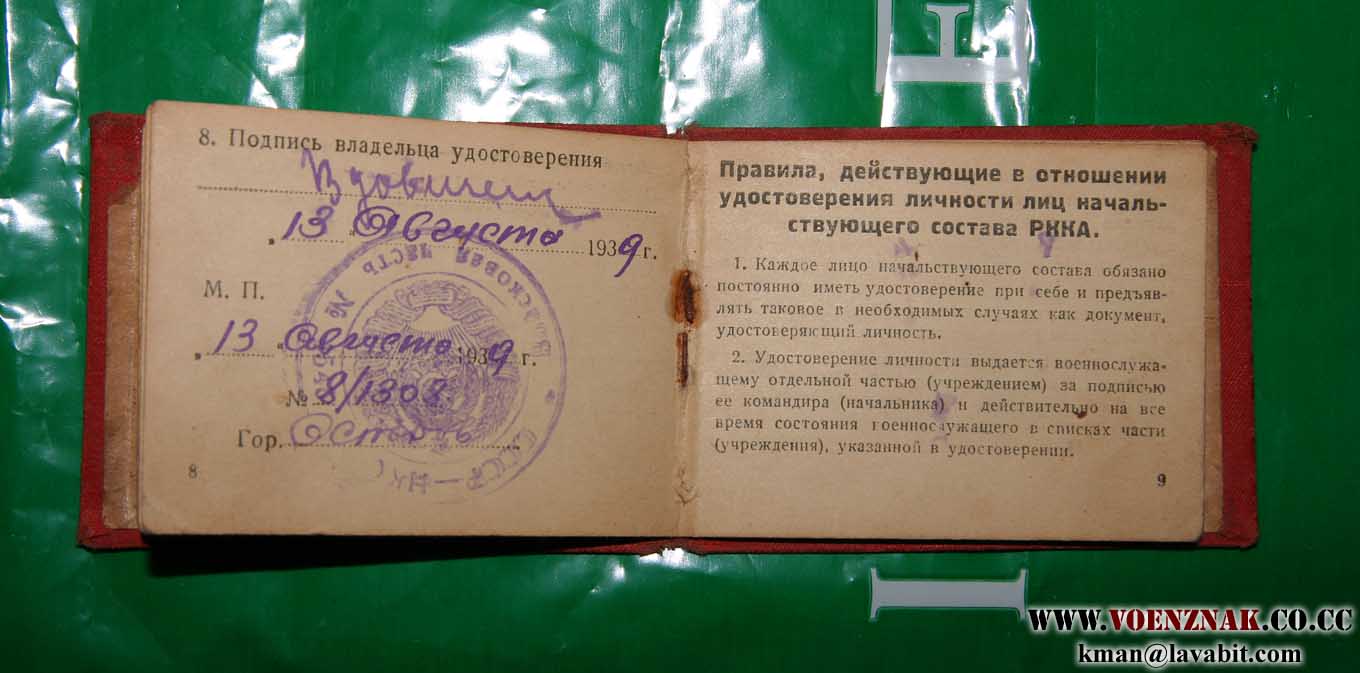 8. Подпись владельца удостоверения
„ 13 " Августа 1939 г.
М. П.
„ 13 " Августа 1939 г.
№ 8/1308
Гор.
8
войсковая часть №
СССР — НК
Правила, действующие в отношении
удостоверения личности лиц началь-
ствующего состава РККА.
1. Каждое лицо начальствующего состава обязано
постоянно иметь удостоверение при себе и предъяв-
лять таковое в необходимых случаях как документ,
удостоверяющий личность.
2. Удостоверение личности выдается военнослужа-
щему отдельной частью (учреждением) за подписью
ее командира (начальника) и действительно на все
время состояния военнослужащего в списках части
(учреждения), указанной в удостоверении.
9
WWW.VOENZNAK.CO.CC
kman@lavabit.com